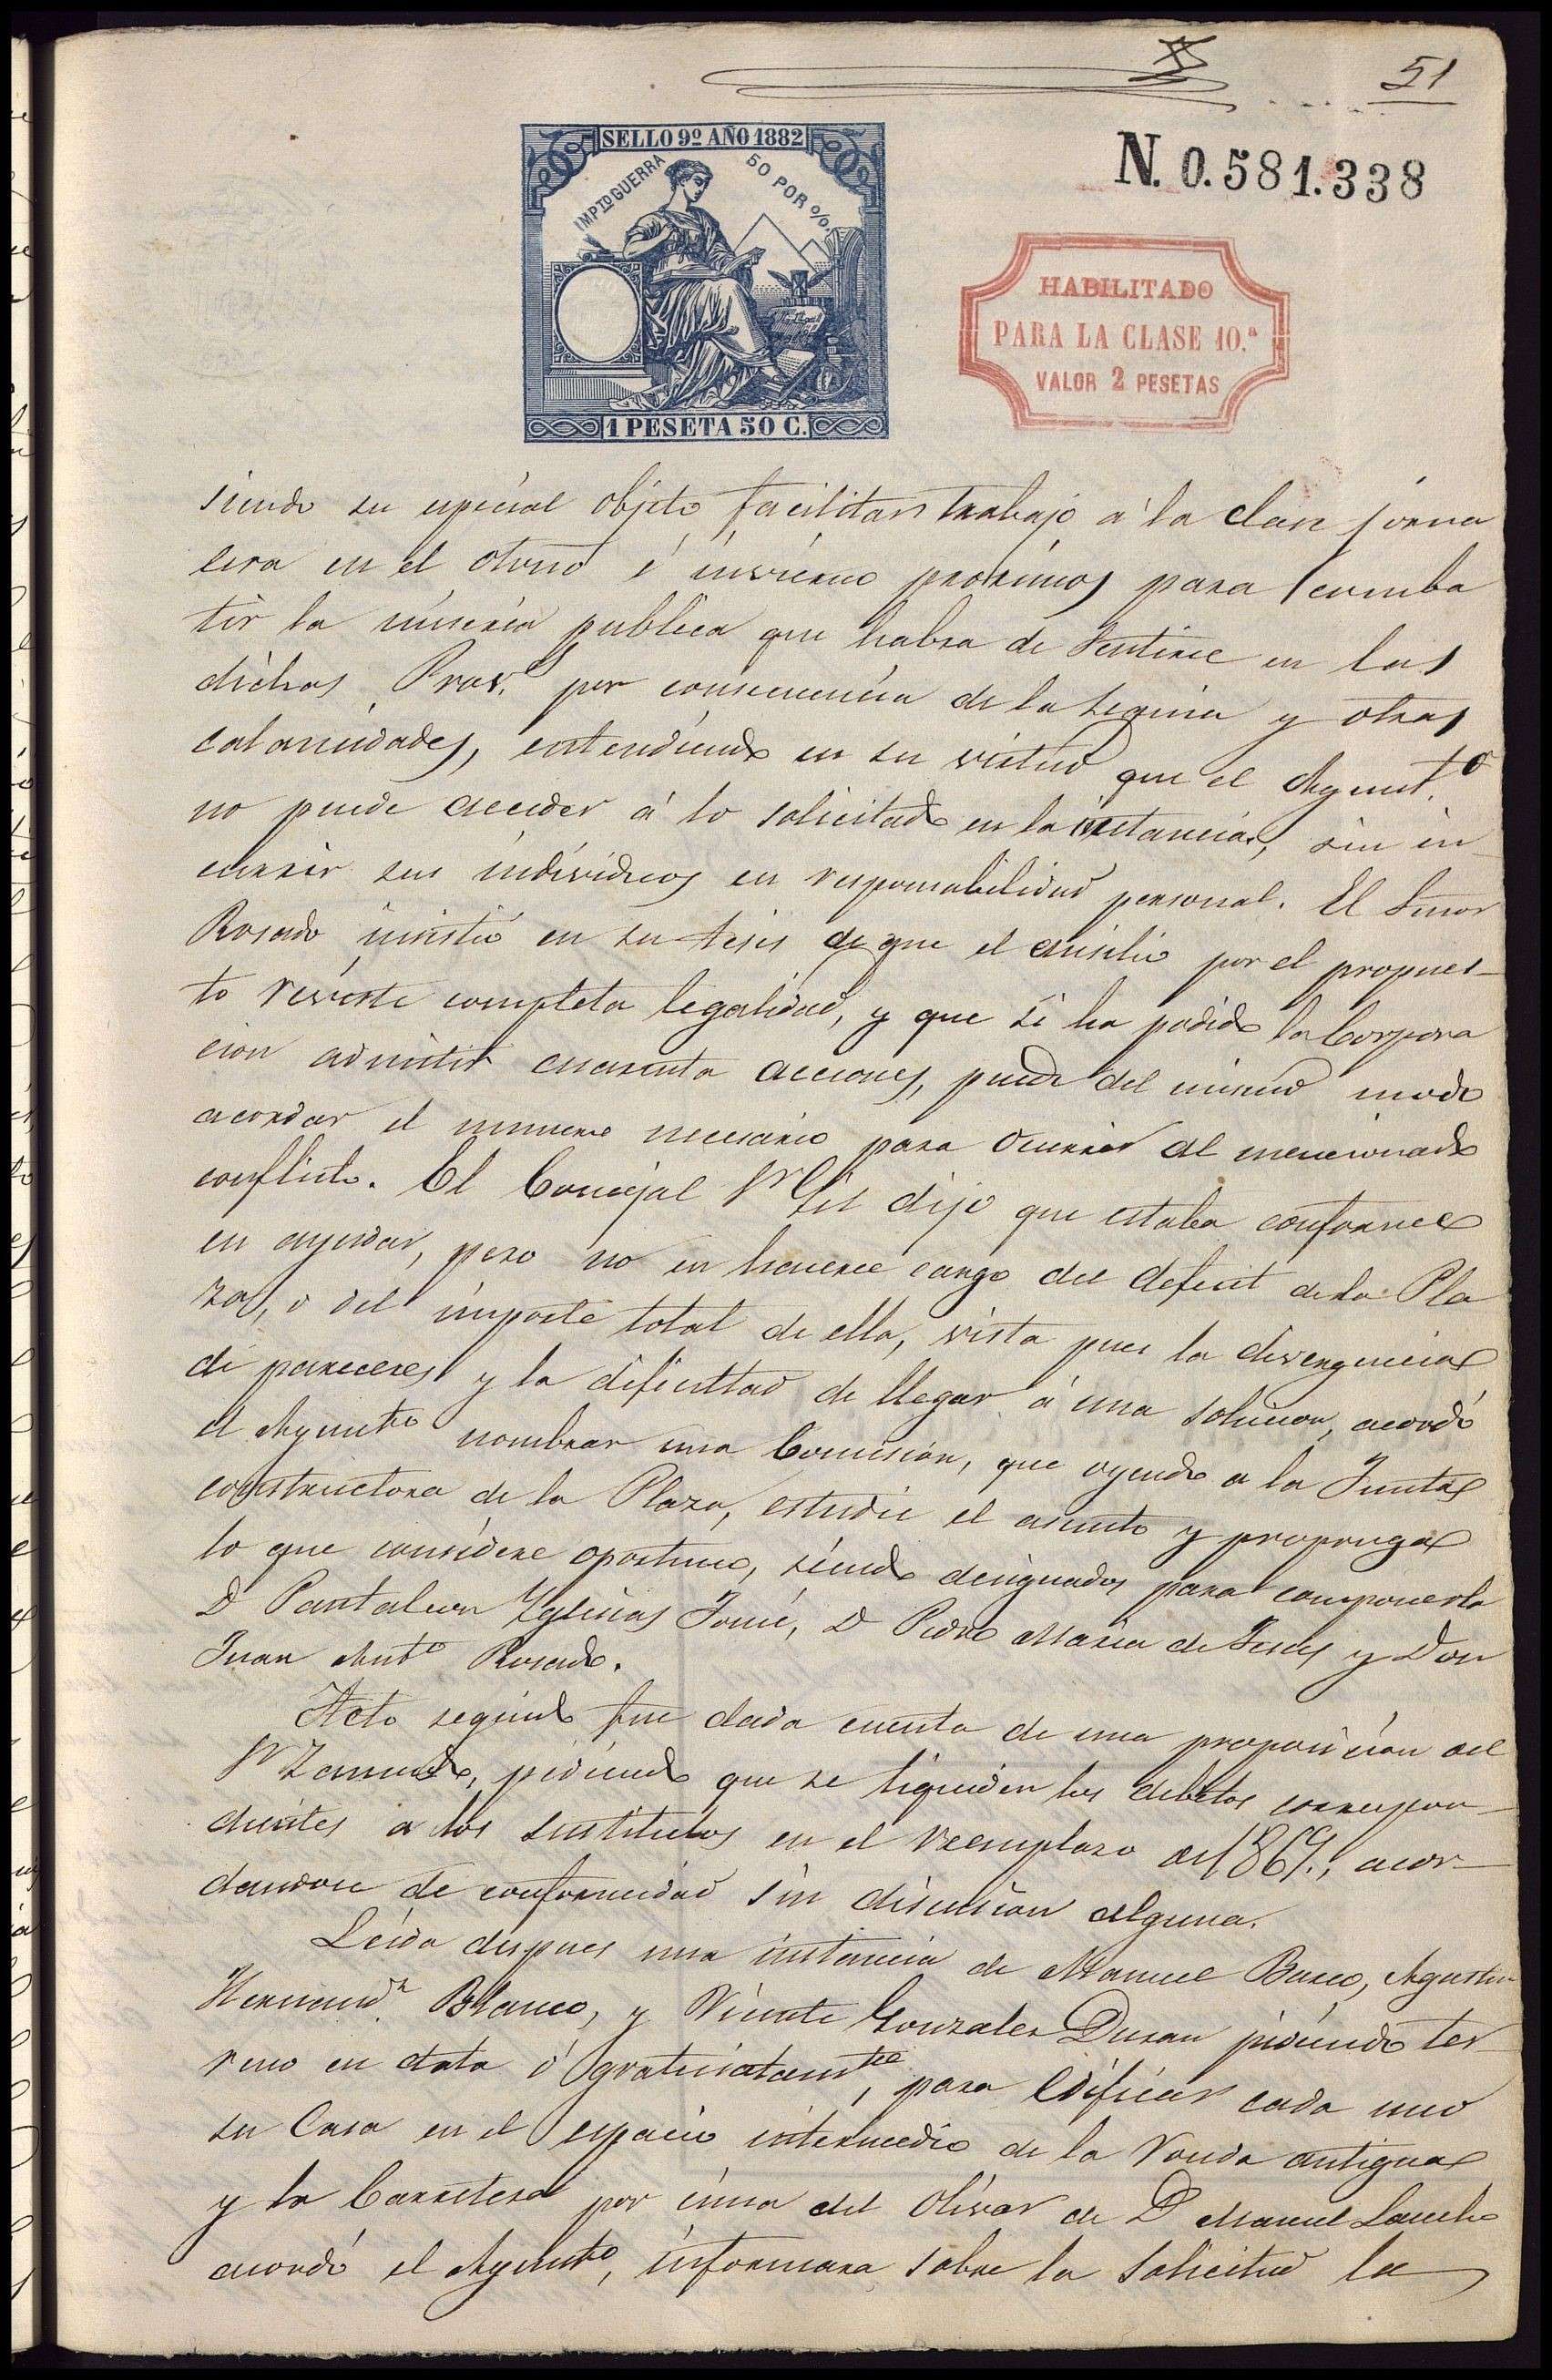 51
SELLO 9º AÑO 1882
IMPTO GUERRA 50 POR %
1 PESETA 50 C.
N. 0.581.338
HABILITADO
PARA LA CLASE 10.ª
VALOR 2 PESETAS
siendo su especial objeto facilitar trabajo á la clase jorna
lera en el otoño é invierno proximos para comba
tir la miseria publica que habra de sentirse en las
dichas Prov.s por consecuencia de la sequia y otras
calamidades, entendiendo en su virtud que el Ayunt.o
no puede acceder á lo solicitado en la instancia, sin in-
currir sus individuos en responsabilidad personal. El Señor
Rosado insistió en su tesis de que el ausilio por el propues-
to reviste completa legalidad, y que si ha podido la Corpora
cion admitir cuarenta acciones, puede del mismo modo
acordar el numero necesario para ocurrir al mencionado
conflicto. El Concejal Sr Gil dijo que estaba conforme
en ayudar, pero no en hacerse cargo del deficit de la Pla
za, o del importe total de ella, vista pues la divergencia
de pareceres y la dificultad de llegar á una solucion, acordó
el Ayunto nombrar una Comision, que oyendo a la Junta
constructora de la Plaza, estudie el asunto y proponga
lo que considere oportuno, siendo designados para componerla
D Pantaleon Yglesias Tomé, D Pedro Maria de Jesus y Don
Juan Anto Rosado.
Acto seguido fue dada cuenta de una proposicion del
Sr pidiendo que se liquiden los debitos correspon-
dientes a los sustitutos en el reemplazo de 1869., acor-
dandose de conformidad sin discusion alguna.
Leida despues una instancia de Manuel Agustin
Hernandz Blanco, y Vicente Gonzalez Duran pidiendo ter-
reno en data ó gratuitamte, para edificar cada uno
su Casa en el espacio intermedio de la ronda antigua
y la Carretera por cima del Olivar de D Manuel Lancho
acordó el Ayunto, informara sobre la solicitud la